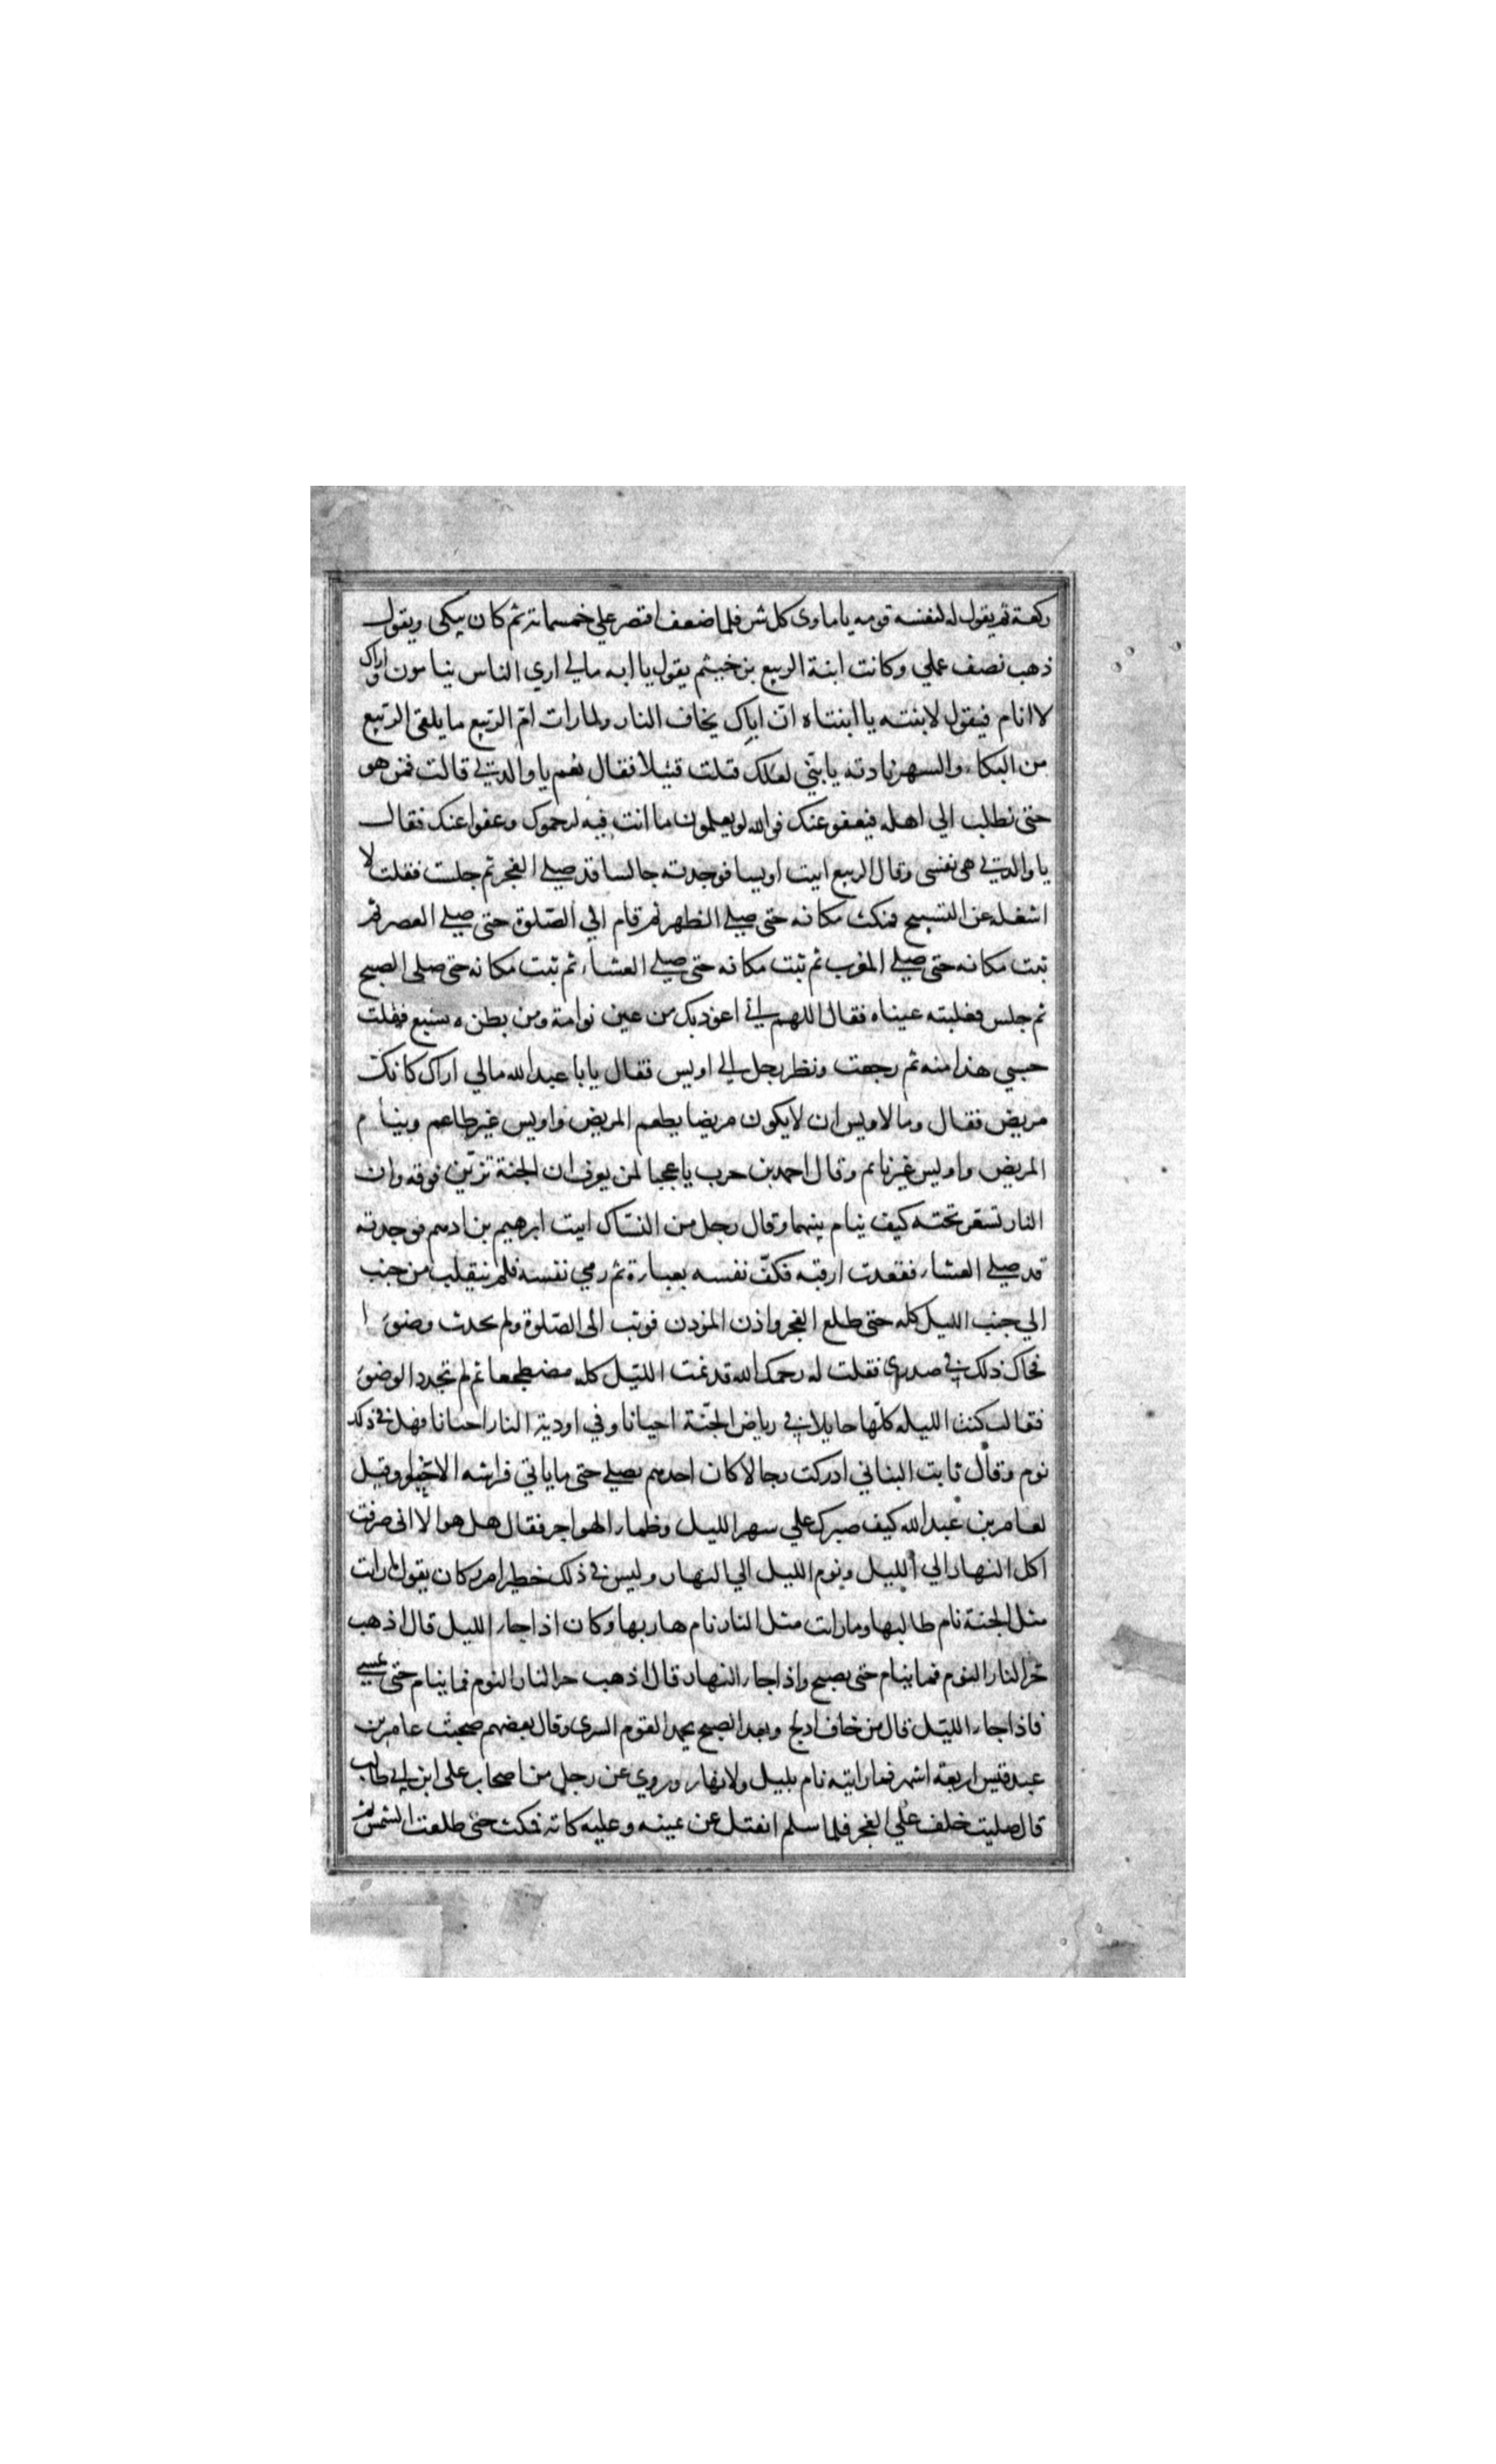 ركعة ثم يقول له لنفسه قومه ياماوى كل شر فلما ضعف اقتصر علي خمسمائة ثم كان يبكى ويقول
ذهب نصف عملي وكانت ابنة الربيع بن خيثم يقول يا ابه مالي اري الناس ينامون واراك
لا انام فيقول لابنته يا ابنتاه ان اباك يخاف النار ولما رات ام الربيع ما يلقى الربيع
من البكاء والسهر نادته يابني لعلك قتلت قتيلا فقال نعم يا والدتي قالت فمن هو
حتى نطلب الي اهله فيعفو عنك فوالله لو يعلمون ما انت فيه لرحموك وعفوا عنك فقال
يا والدتي هى نفسى وقال الربيع اتيت اويسا فوجدته جالسا قد صلي الفجر ثم جلست فقلت لا
اشغله عن التسبيح فمكث مكانه حتى صلي الظهر ثم قام الي الصلوة حتى صلي العصر ثم
ثبت مكانه حتى صلي المغرب ثم ثبت مكانه حتى صلي العشاء ثم ثبت مكانه حتى صلى الصبح
ثم جلس فغلبته عيناه فقال اللهم اني اعوذ بك من عين نوامة ومن بطن ه يشبع فقلت
حسبي هذا منه ثم رجعت ونظر رجل الي اويس فقال يابا عبدالله مالي اراك كانك
مريض فقال وما لاويس ان لا يكون مريضا يطعم المريض واويس غير طاعم وينام
المريض واويس غير نائم وقال احمد بن حرب يا عجبا لمن يعرف ان الجنة تزين فوقه وان
النار تسعر تحته كيف ينام بينهما وقال رجل من النساك اتيت ابرهيم بن ادهم فوجدته
قد صلي العشاء فقعدت ارقبه فكف نفسه بعباءة ثم رمي نفسه فلم ينقلب من جنب
الي جنب الليل كله حتى طلع الفجر واذن المؤذن فوثب الى الصلوة ولم يحدث وضوءا
فحاك ذلك في صدري فقلت له رحمك الله قد نمت الليل كله مضطجعا ثم لم تجدد الوضوء
فقال كنت الليله كلها جايلا في رياض الجنة احيانا وفي اودية النار احيانا فهل في ذلك
نوم وقال ثابت البناني ادركت رجالا كان احدهم يصلي حتى ما ياتي فراشه الا حبوا وقيل
لعامر بن عبدالله كيف صبرك علي سهر الليل وظماء الهواجر فقال هل هو الا انى صرفت
اكل النهار الي الليل ونوم الليل الي النهار وليس في ذلك خطير امر وكان يقول ما رات
مثل الجنة نام طالبها وما رات مثل النار نام هاربها وكان اذا جاء الليل قال اذهب
حر النار النوم فما ينام حتى يصبح واذا جاء النهار قال اذهب حر النار النوم فما ينام حتى يمسي
فاذا جاء الليل قال من خاف ادلج وبعد الصبح يحمد القوم السرى وقال بعضهم صحبت عامر بن
عبد قيس اربعة اشهر فما رايته نام بليل ولا نهار وروي عن رجل من اصحاب على ابن ابي طالب
قال صليت خلف علي الفجر فلما سلم انفتل عن يمينه وعليه كابة فمكث حتى طلعت الشمس ثم